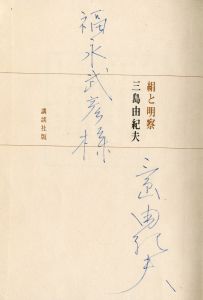 福永武彦様
絹と明察
三島由紀夫
講談社版
三島由紀夫